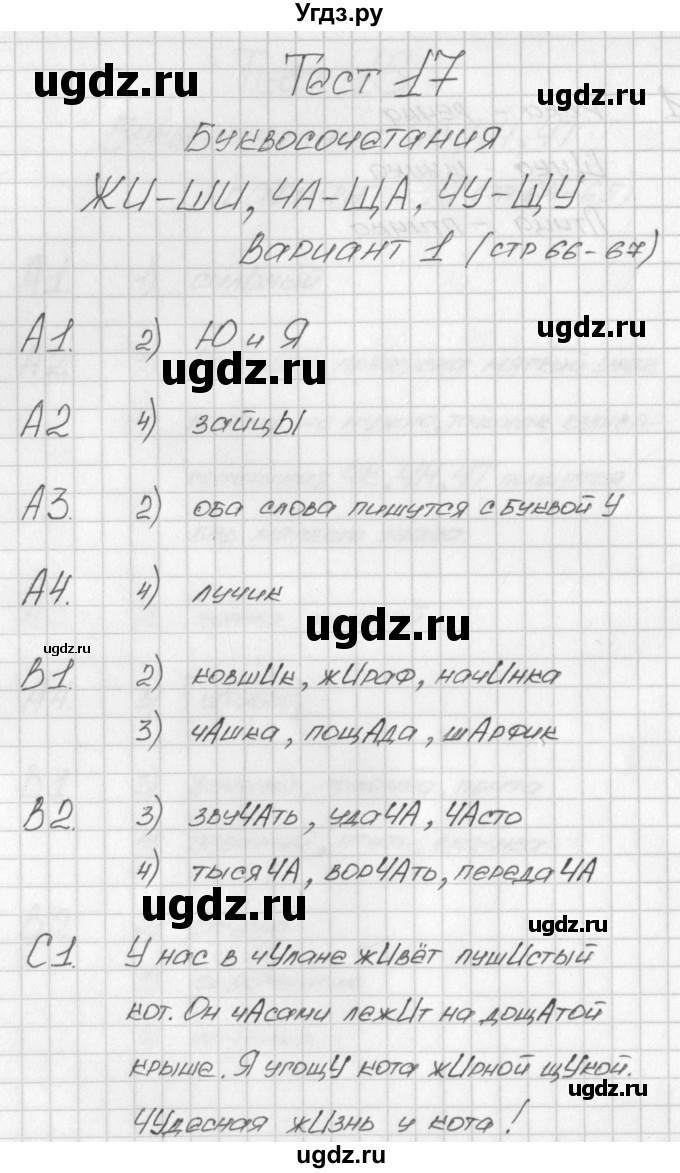 Угдз.ру
Тест 17
ugdz.ru
ugdz.ru
Буквосочетания
ugdz.ru
ЖИ-ШИ, ЧА-ЩА, ЧУ-ЩУ
Вариант 1 (стр 66-67)
А1. 2) Ю и Я
ugdz.ru
ugdz.ru
А2 4) зайцЫ
А3. 2) оба слова пишутся с буквой У
А4. 4) лучик
ugdz.ru
ugdz.ru
В1. 2) ковшИк, жИраф, начИнка
3) чАшка, пощАда, шАрфик
В2. 3) звуЧАть, удаЧА, ЧАсто
4) тысяЧА, ворЧАть, передаЧА
ugdz.ru
ugdz.ru
С1. У нас в чУлане жИвёт пушИстый
кот. Он чАсами лежИт на дощАтой
крыше. Я угощУ кота жИрной щУкой.
ugdz.ru
ЧУдесная жИзнь у кота!
ugdz.ru